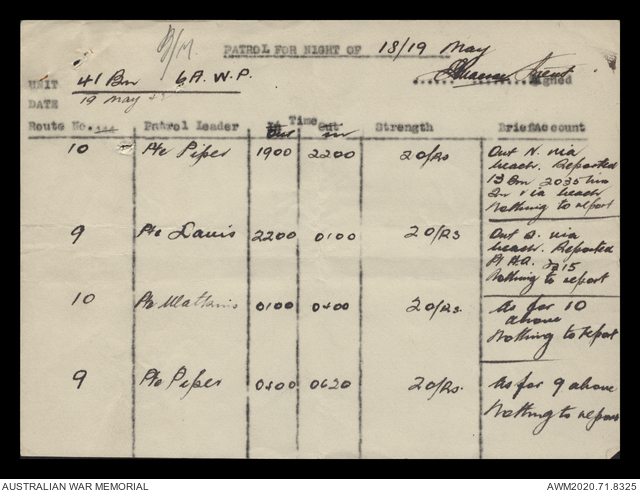 PATROL FOR NIGHT OF 18/19 May
UNIT 41 Bn 6A.W.P.
Signed
DATE 19 May
Route No. Patrol Leader Time Out In Strength Brief Account
10 Pte Piper 1900 2200 2 O/Rs Out N. via
beach. Reported
13 Bn 2035 hrs
In via beach
Nothing to report
9 Pte Davis 2200 0100 2 O/Rs Out S. via
beach. Reported
Pl H.Q. 2315
Nothing to report
10 Pte 0100 0400 2 O/Rs. As for 10
above
Nothing to report
9 Pte Piper 0400 0620 2 O/Rs. As for 9 above
Nothing to report
AUSTRALIAN WAR MEMORIAL AWM2020.71.8325